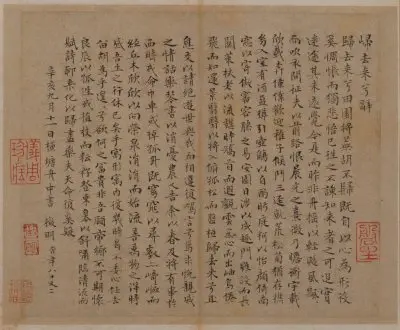 歸去來兮辭
歸去來兮田園將蕪胡不歸既自以心為形役
奚惆悵而獨悲悟已往之不諫知來者之可追實
迷途其未遠覺今是而昨非舟搖搖以輕颺風飄
飄而吹衣問征夫以前路恨晨光之熹微乃瞻衡宇載
欣載奔僮僕歡迎稚子候門三逕就荒松菊猶存携
幼入室有酒盈樽引壺觴以自酌眄庭柯以怡顏倚南
窗以寄傲審容膝之易安園日涉以成趣門雖設而常
關策扶老以流憩時矯首而遐觀雲無心而出岫鳥倦
飛而知還景翳翳以將入撫孤松而盤桓歸去來兮請
息交以絕遊世與我而相遺復駕言兮焉求悅親戚
之情話樂琴書以消憂農人告余以春及將有事於
西疇或命巾車或棹孤舟既窈窕以尋壑亦崎嶇而
經丘木欣欣以向榮泉涓涓而始流善萬物之得時
感吾生之行休已矣乎寓形宇內復幾時曷不委心任去
留胡為乎遑遑兮欲何之富貴非吾願帝鄉不可期懷
良辰以孤往或植杖而耘耔登東皋以舒嘯臨清流而
賦詩聊乘化以歸盡樂夫天命復奚疑
辛亥九月十一日橫塘舟中書 徵明 時年八十又二